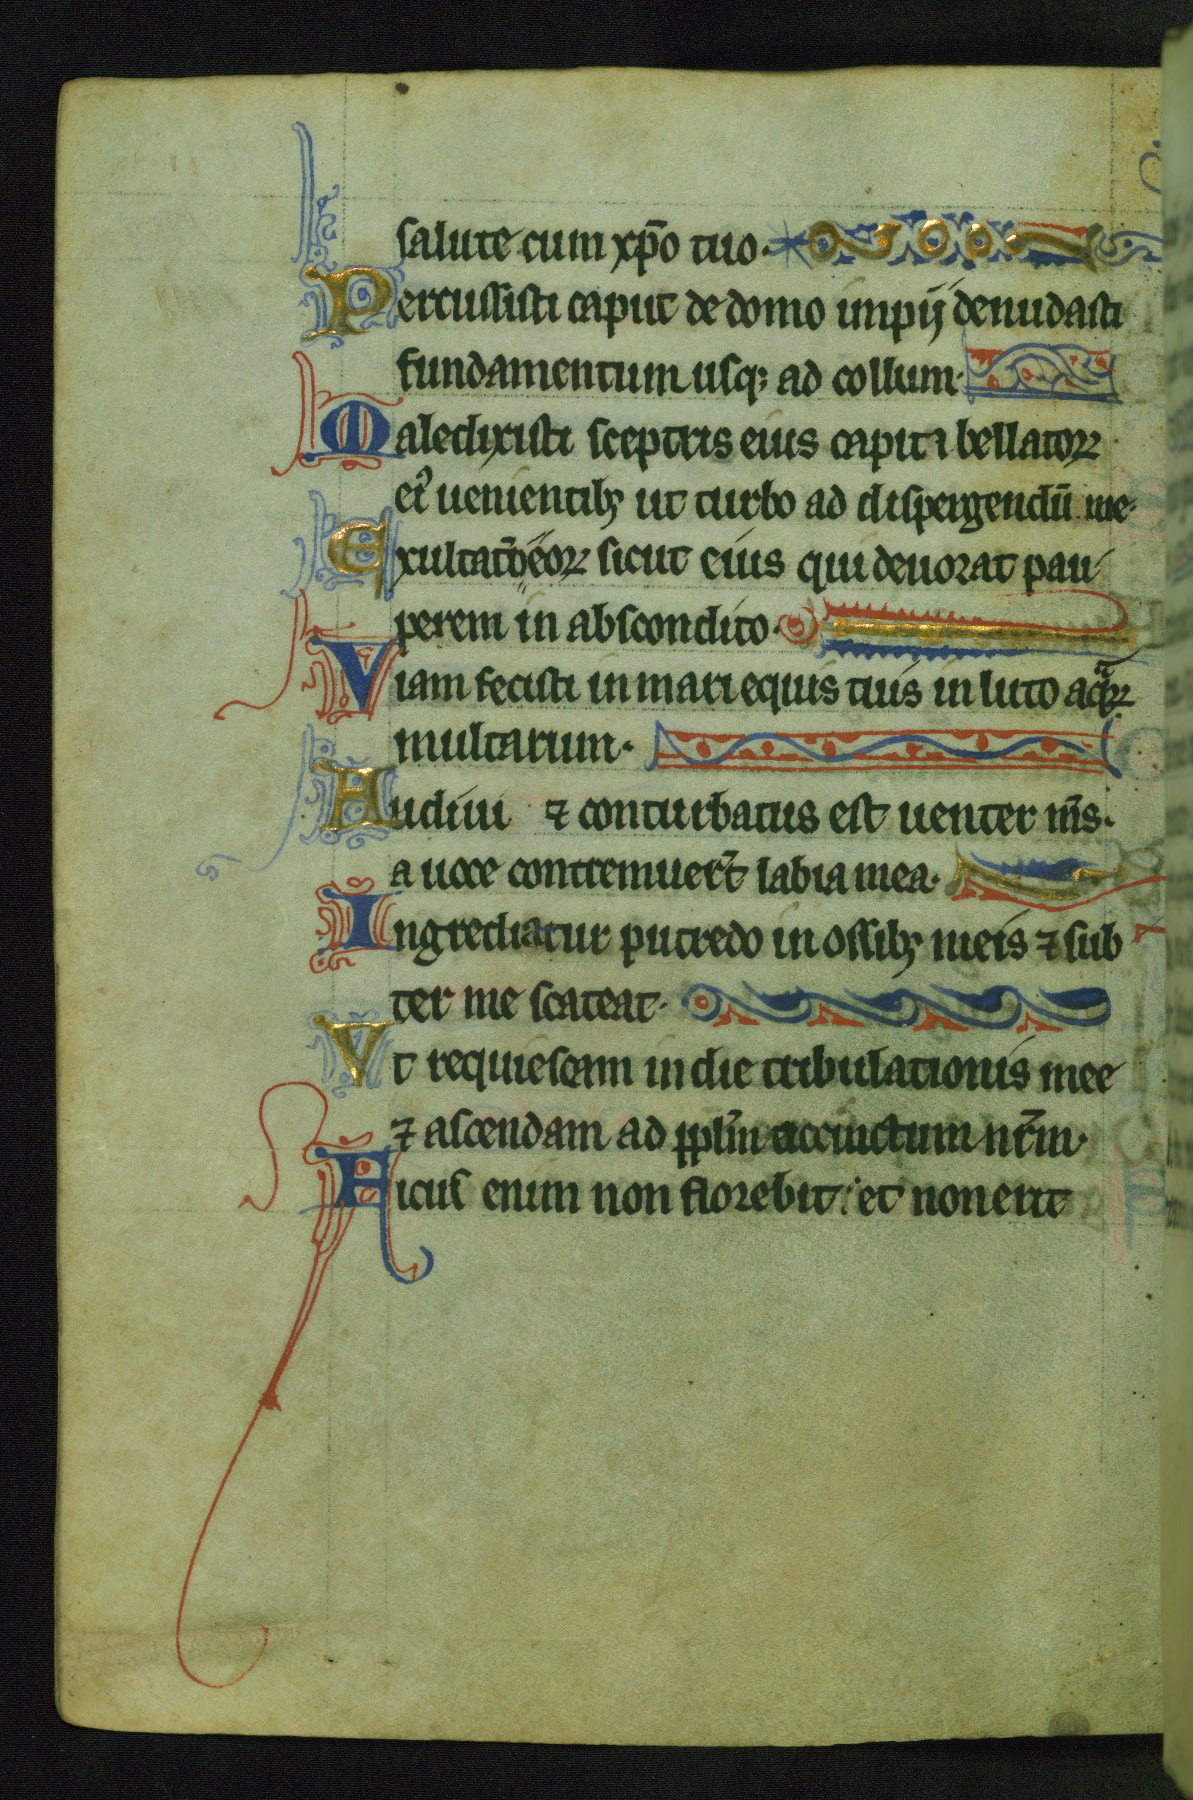 salute cum xp̄o tuo·
Percussisti caput de domo impij denudasti
fundamentum usq; ad collum·
Maledixisti sceptris eius capiti bellatoꝝ
eiꝰ uenientibꝫ ut turbo ad dispergendū me·
Exultatō eoꝝ sicut eius qui deuorat pau
perem in abscondito·
Viam fecisti in mari equis tuis in luto aqͣꝝ
multarum·
Audiui ⁊ conturbatus est uenter m̄s·
a uoce contremuer̄t labia mea·
Ingrediatur putredo in ossibꝫ meis ⁊ sub
ter me scateat·
Vt requiescam in die tribulationis mee
⁊ ascendam ad pplm̄ accinctum nr̄m·
Ficus enim non florebit: et non erit